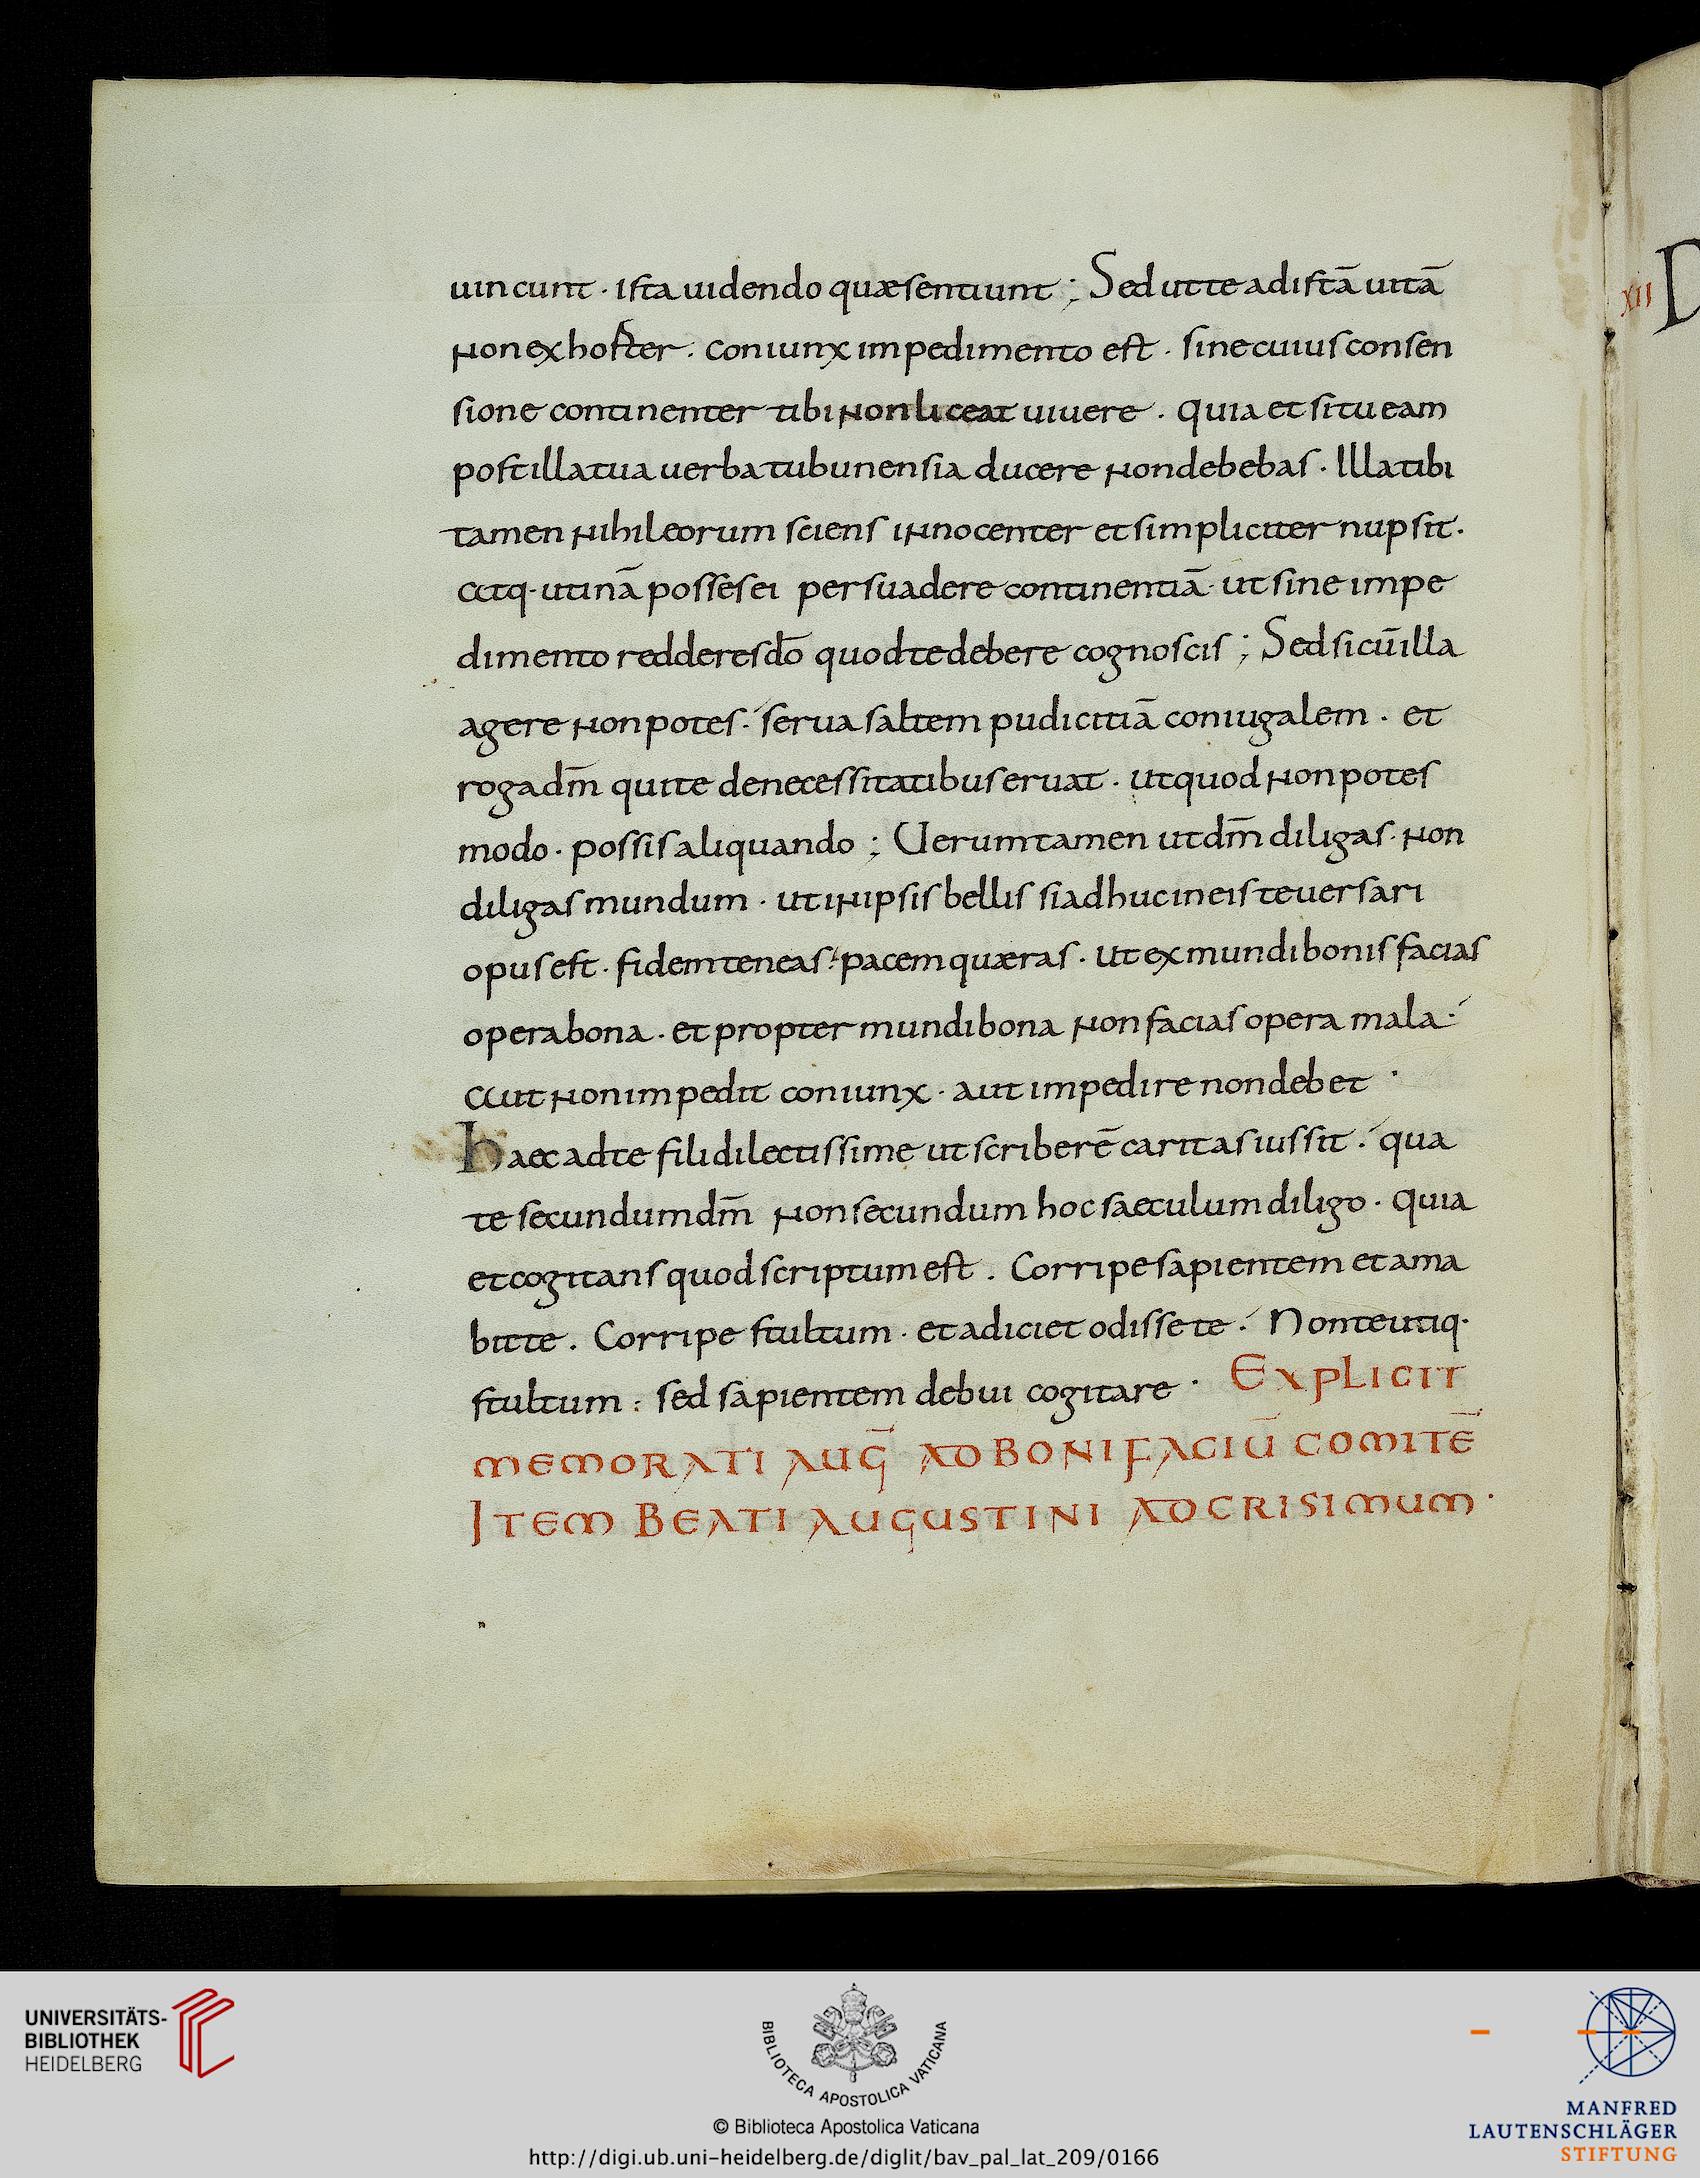 uincunt · ista uidendo quæ sentiunt ; Sed ut te ad istā uitā
non exhoster · coniunx impedimento est · sine cuius consen
sione continenter tibi non liceat uiuere · quia et si tu eam
post illa tua uerba tubunensia ducere non debebas · Illa tibi
tamen nihil eorum sciens innocenter et simpliciter nupsit ·
atq· utinā posses ei persuadere continentiā · ut sine impe
dimento redderes dō quod te debere cognoscis ; Sed si cū illa
agere non potes · serua saltem pudicitiā coniugalem · et
roga dm̄ qui te de necessitatibus eruat · ut quod non potes
modo · possis aliquando ; Uerumtamen ut dm̄ diligas · non
diligas mundum · ut in ipsis bellis si adhuc in eis te uersari
opus est · fidem teneas · pacem quæras · ut ex mundi bonis facias
opera bona · et propter mundi bona non facias opera mala ·
aut non impedit coniunx · aut impedire non debet ·
haec ad te fili dilectissime ut scriberē caritas iussit · qua
te secundum dm̄ non secundum hoc saeculum diligo · quia
et cogitans quod scriptum est . Corripe sapientem et ama
bit te . Corripe stultum · et adiciet odisse te · Non te utiq·
stultum : sed sapientem debui cogitare · EXPLICIT
MEMORATI AUḠ AD BONIFACIŪ COMITĒ
ITEM BEATI AUGUSTINI AD CRISIMUM ·
XII
D
UNIVERSITÄTS-
BIBLIOTHEK
HEIDELBERG
BIBLIOTECA APOSTOLICA VATICANA
© Biblioteca Apostolica Vaticana
http://digi.ub.uni-heidelberg.de/diglit/bav_pal_lat_209/0166
MANFRED
LAUTENSCHLÄGER
STIFTUNG